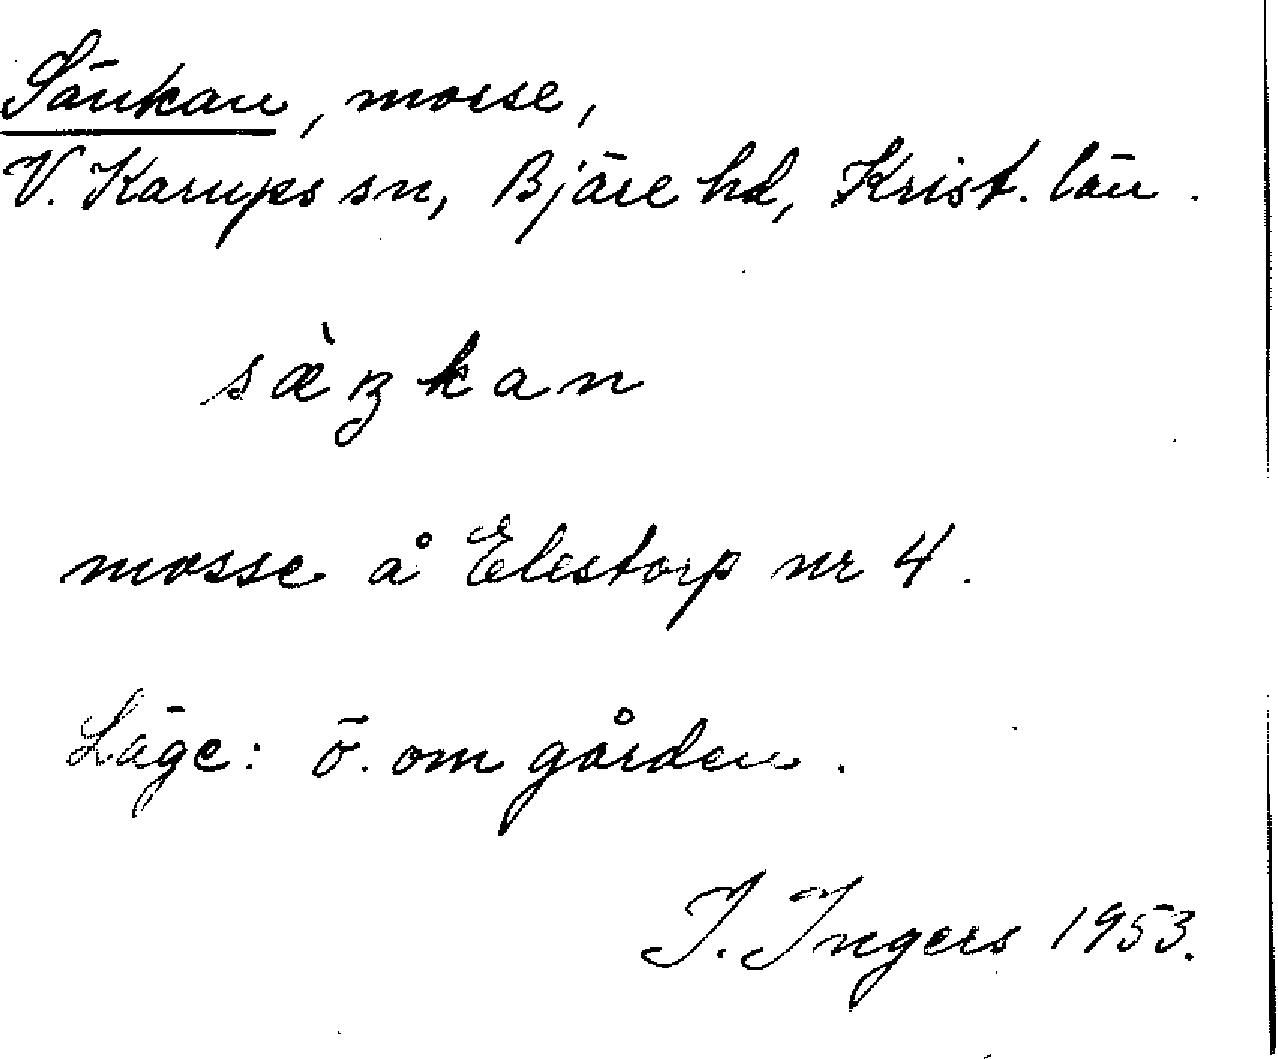 Sänkan, mosse,
V. Karups sn, Bjäre hd, Krist. län.
sæ̀ŋkan
mosse å Elestorp nr 4.
Läge: ö. om gården.
I. Ingers 1953.